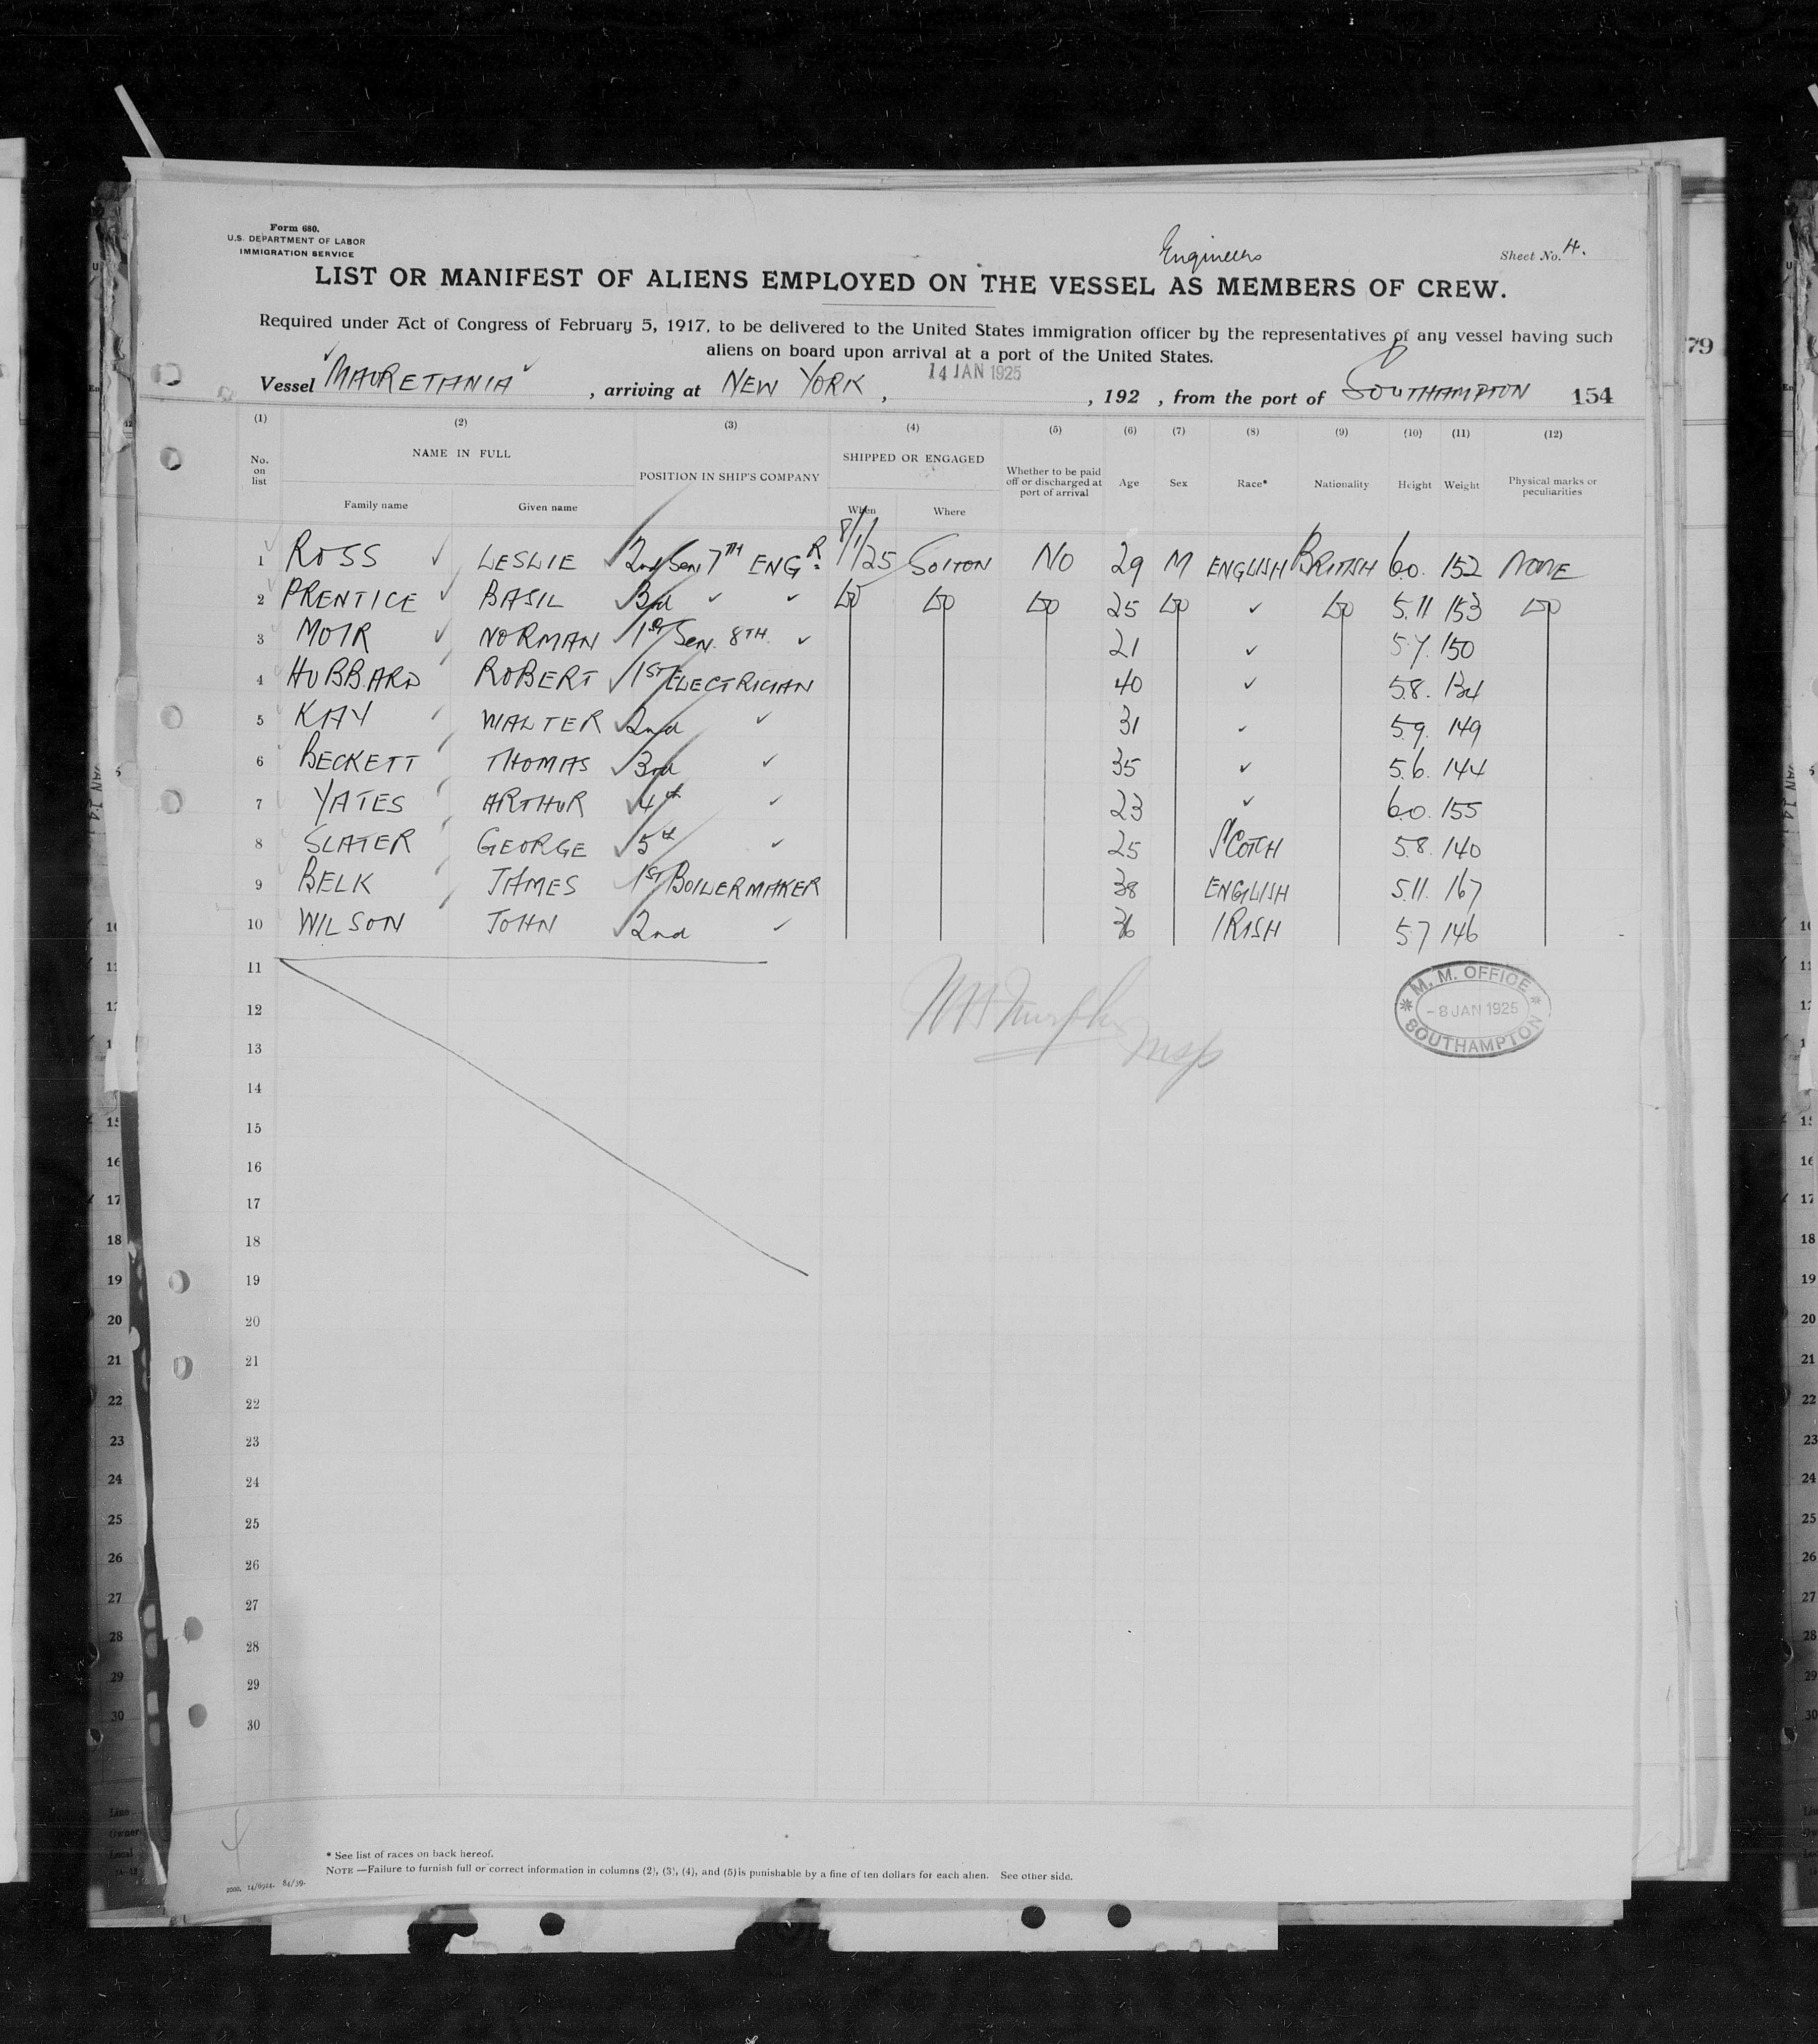 Form 680.
U.S. DEPARTMENT OF LABOR
IMMIGRATION SERVICE
Engineers
Sheet No. 4.
LIST OR MANIFEST OF ALIENS EMPLOYED ON THE VESSEL AS MEMBERS OF CREW.
Required under Act of Congress of February 5, 1917, to be delivered to the United States immigration officer by the representatives of any vessel having such
aliens on board upon arrival at a port of the United States.
Vessel "MAURETANIA", arriving at NEW YORK, 14 JAN 1925, 192 , from the port of SOUTHAMPTON 154
79
(1) (2) (3) (4) (5) (6) (7) (8) (9) (10) (11) (12)
No. on list NAME IN FULL POSITION IN SHIP'S COMPANY SHIPPED OR ENGAGED Whether to be paid off or discharged at port of arrival Age Sex Race* Nationality Height Weight Physical marks or peculiarities
Family name Given name When Where
1 ROSS LESLIE 2nd Sen 7TH ENGR. 8/1/25 SOTON NO 29 M ENGLISH BRITISH 6.0. 152 NONE
2 PRENTICE BASIL 3rd ✓ ✓ DO DO DO 25 DO ✓ DO 5.11 153 DO
3 MOIR NORMAN 1st Sen. 8TH. ✓ 21 ✓ 5.7. 150
4 HUBBARD ROBERT 1ST ELECTRICIAN 40 ✓ 5.8. 134
5 KAY WALTER 2nd ✓ 31 ✓ 5.9. 149
6 BECKETT THOMAS 3rd ✓ 35 ✓ 5.6. 144
7 YATES ARTHUR 4th ✓ 23 ✓ 6.0. 155
8 SLATER GEORGE 5th ✓ 25 SCOTCH 5.8. 140
9 BELK JAMES 1ST BOILERMAKER 38 ENGLISH 5.11. 167
10 WILSON JOHN 2nd ✓ 36 IRISH 5.7 146
11
12
13
14
15
16
17
18
19
20
21
22
23
24
25
26
27
28
29
30
M. M. OFFICE
-8 JAN 1925
SOUTHAMPTON
* See list of races on back hereof.
NOTE —Failure to furnish full or correct information in columns (2), (3), (4), and (5) is punishable by a fine of ten dollars for each alien. See other side.
2000. 14/6924. 84/39.